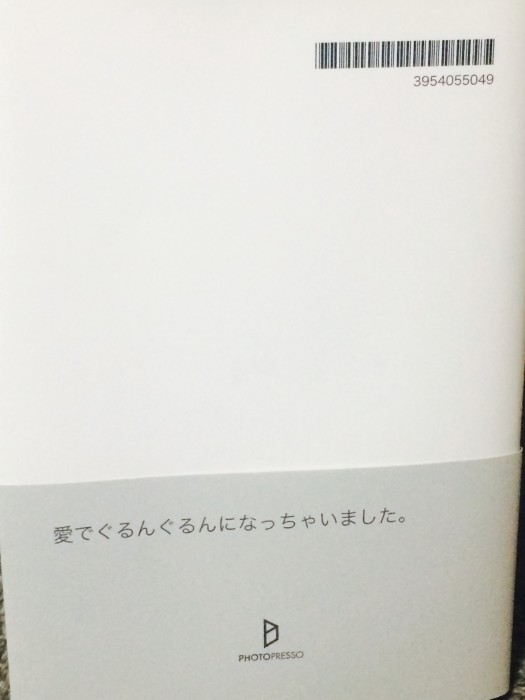 3954055049
愛でぐるんぐるんになっちゃいました。
PHOTOPRESSO